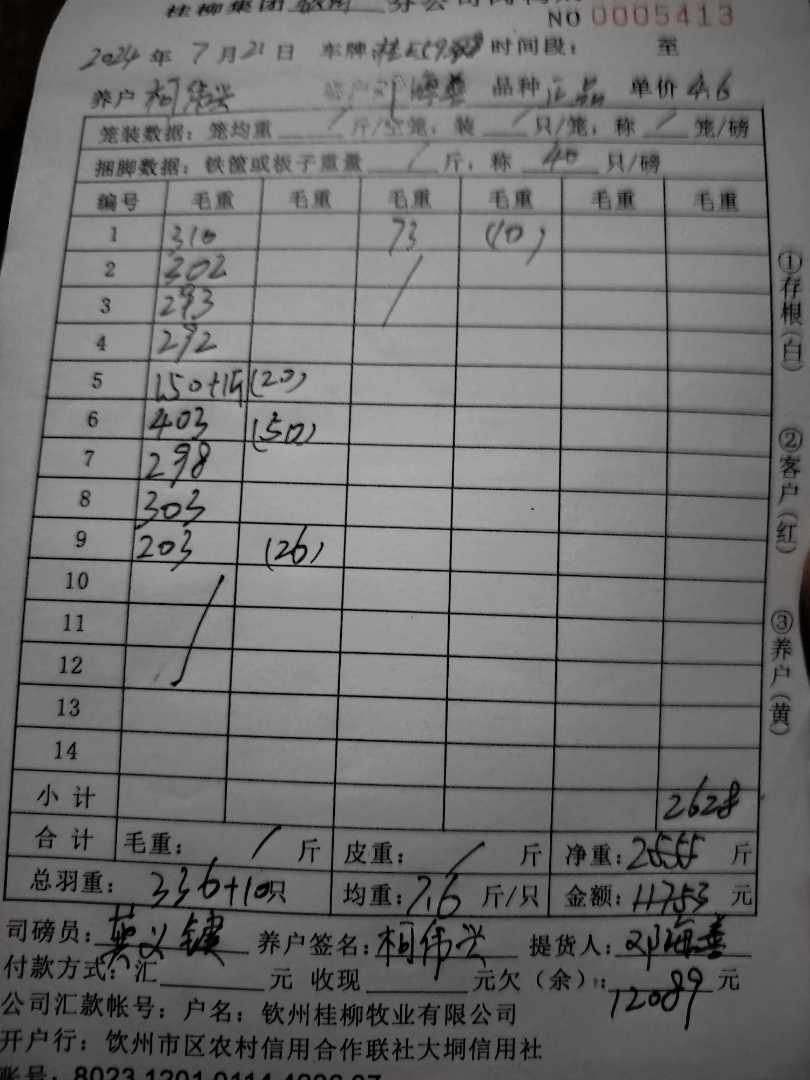 桂柳集团钦州 分公司
NO 0005413
2024 年 7 月 21 日 车牌 时间段： 至
养户 柯伟兴 客户 邓海善 品种 正品 单价 4.6
笼装数据：笼均重 / 斤/空笼，装 / 只/笼，称 / 笼/磅
捆脚数据：铁篮或板子重量 / 斤，称 40 只/磅
编号 毛重 毛重 毛重 毛重 毛重 毛重
1 310 73 (10)
2 302 /
3 293
4 292
5 150+1 (20)
6 403 (50)
7 298
8 303
9 203 (26)
10 /
11
12
13
14
小 计 2628
合 计 毛重： / 斤 皮重： / 斤 净重：2555 斤
总羽重： 336+10只 均重：7.6 斤/只 金额：11753 元
司磅员： 养户签名：柯伟兴 提货人：邓海善
付款方式：汇 元 收现 元欠（余）：12089 元
公司汇款帐号：户名：钦州桂柳牧业有限公司
开户行：饮州市区农村信用合作联社大垌信用社
账号：8023 1201 0114
①存根(白)
②客户(红)
③养户(黄)